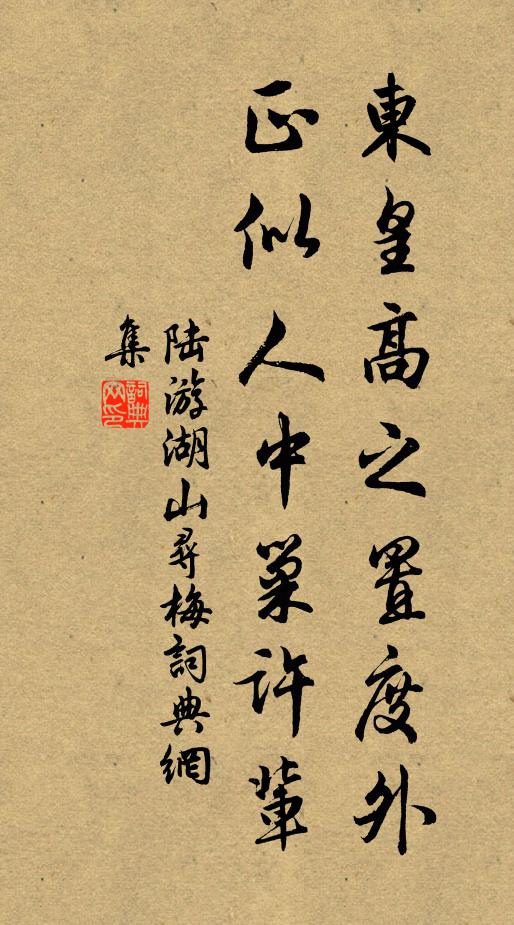 東皇高之置度外
正似人中巢許輩
陸游湖山尋梅詞典網
集
詞典
网印